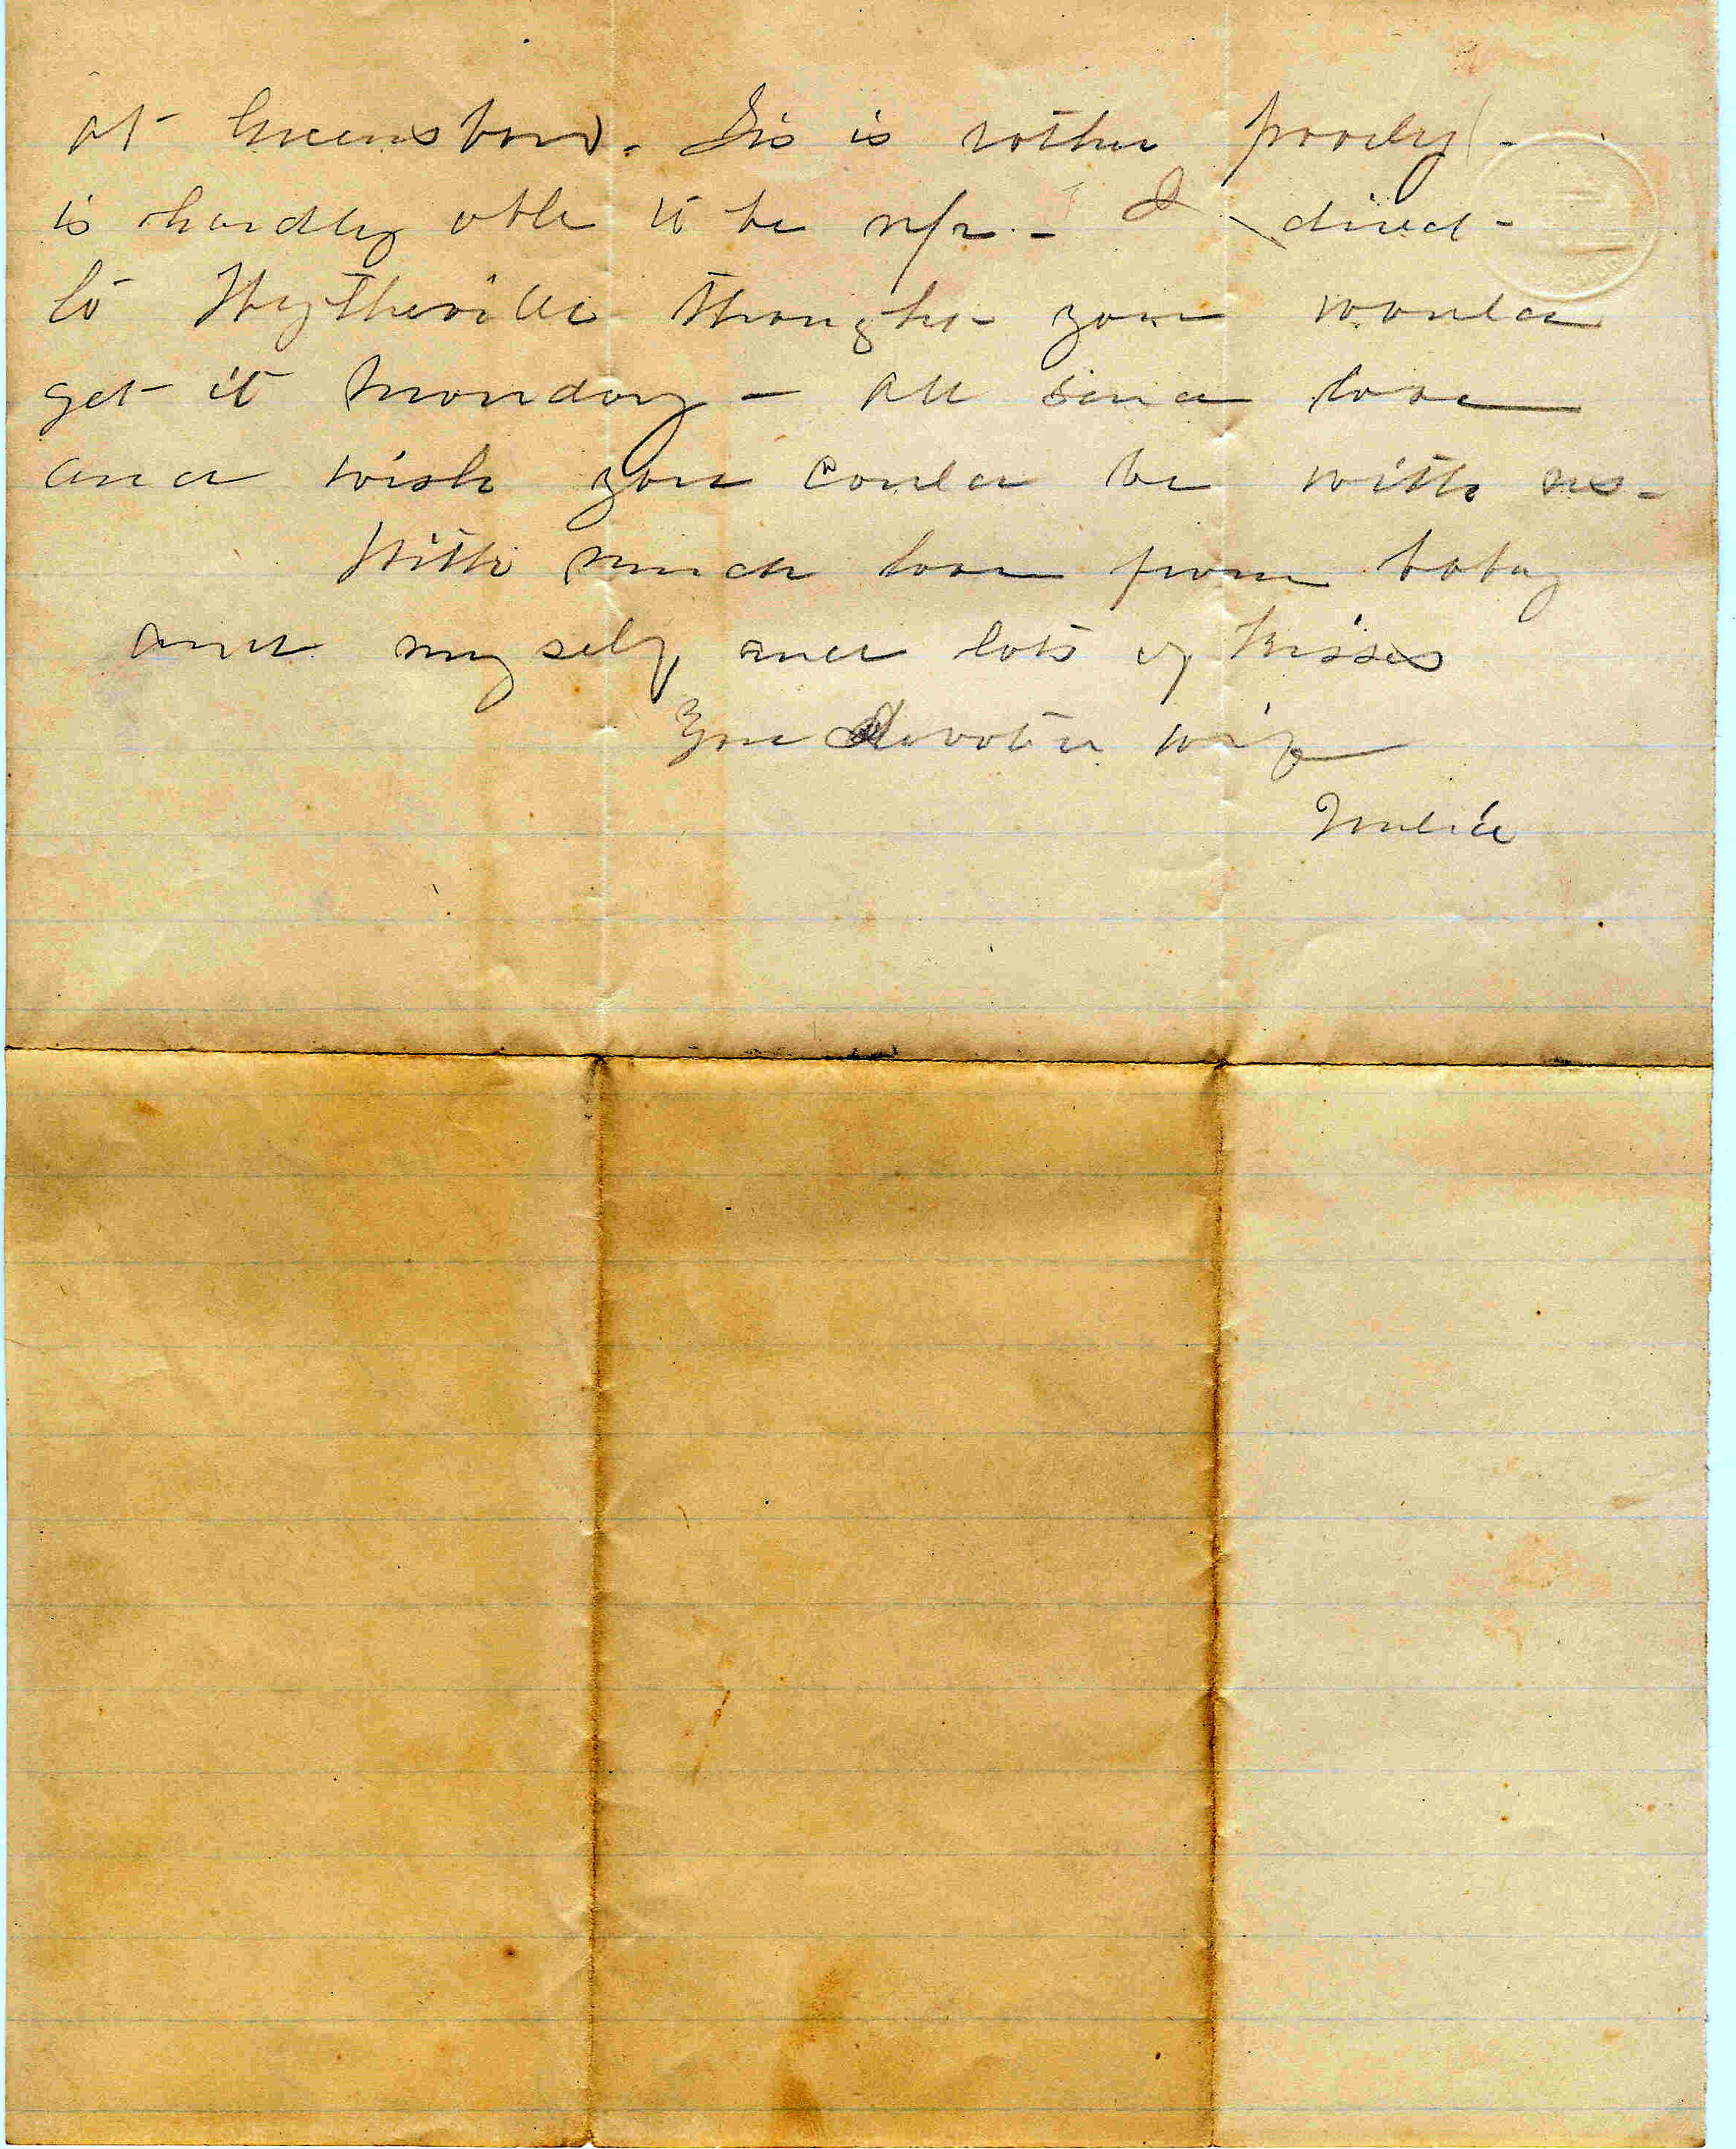 at Greensboro. Sis is rather poorly -
is hardly able to be up. - I direct
to Wytheville thought you would
get it Monday - All send love
and wish you could be with us -
With much love from baby
and my self and lots of kisses
Your devoted wife